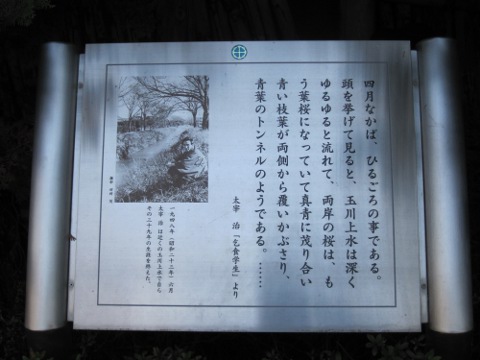 四月なかば、ひるごろの事である。
頭を挙げて見ると、玉川上水は深く
ゆるゆると流れて、両岸の桜は、も
う葉桜になっていて真青に茂り合い
青い枝葉が両側から覆いかぶさり、
青葉のトンネルのようである。……
太宰 治「乞食学生」より
一九四八年（昭和二十三年）六月
太宰 治は近くの玉川上水で自ら
その三十九年の生涯を終えた。